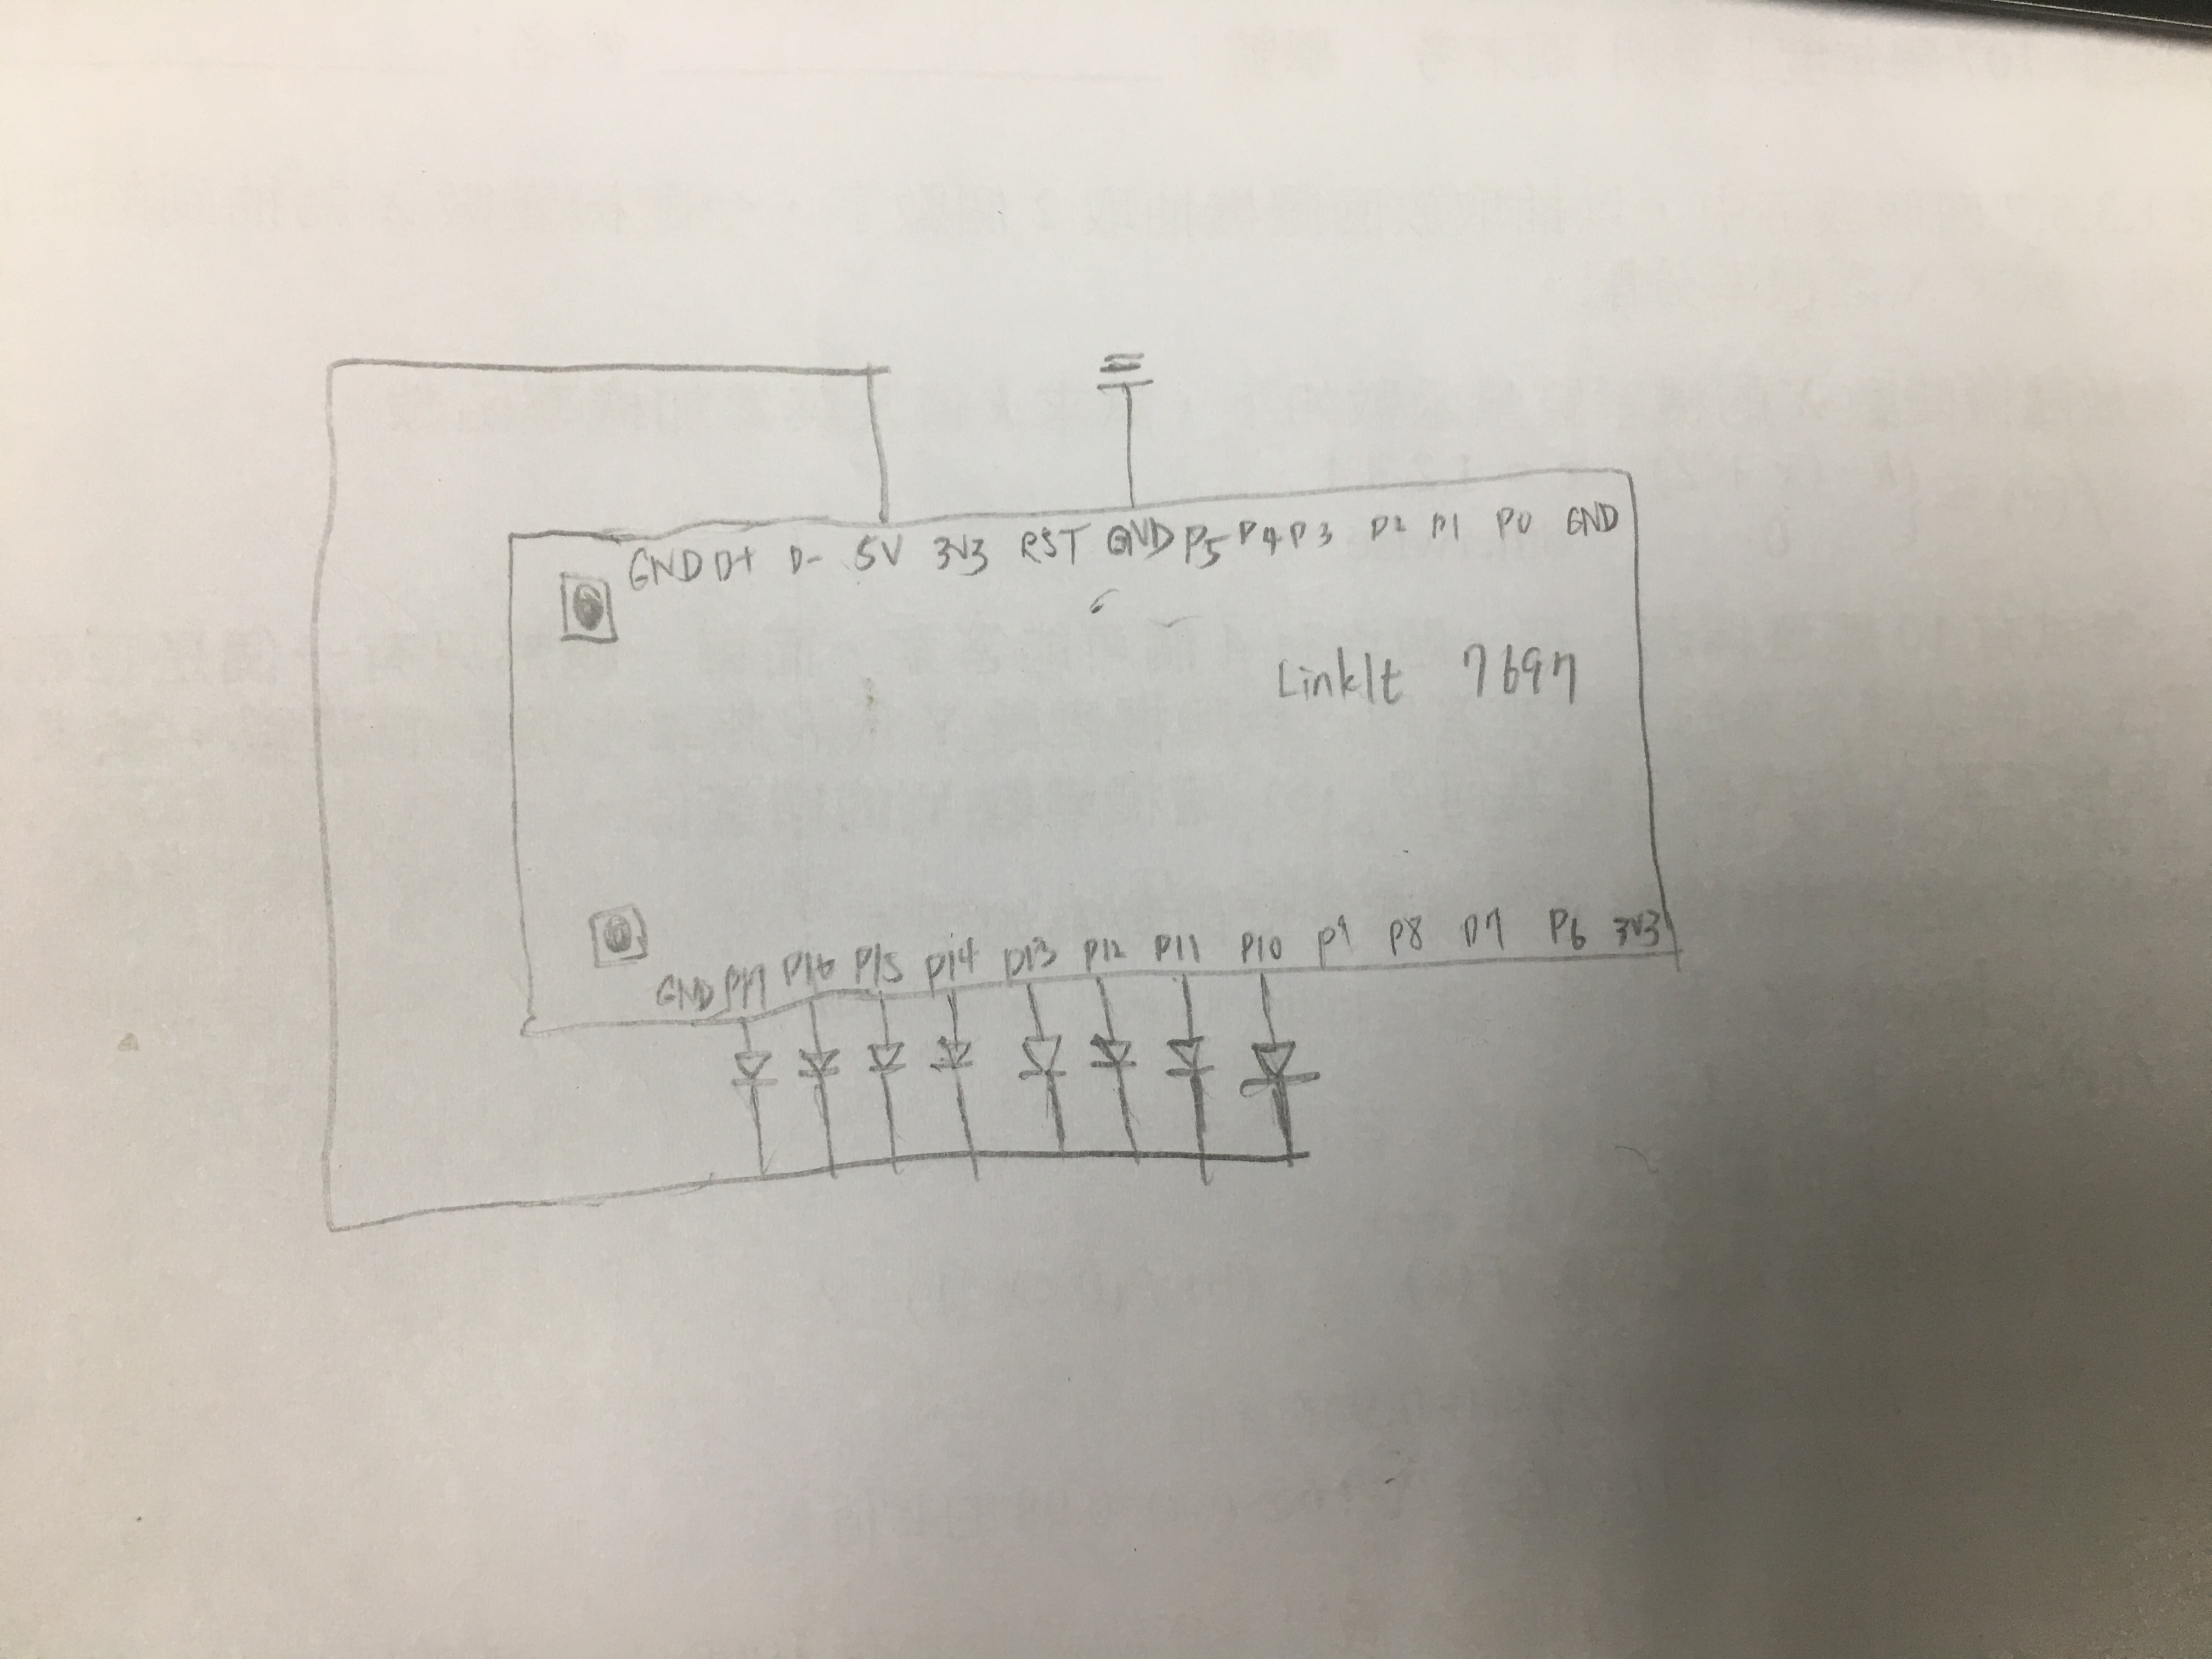 GND D+ D- 5V 3V3 RST GND P5 P4 P3 P2 P1 P0 GND
LinkIt 7697
GND P17 P16 P15 P14 P13 P12 P11 P10 P9 P8 P7 P6 3V3